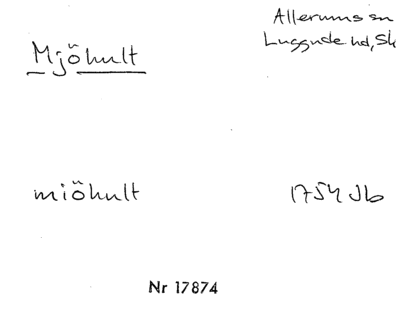 Mjöhult
Allerums sn
Luggude hd, Sk
miöhult
1754 Jb
Nr 17874